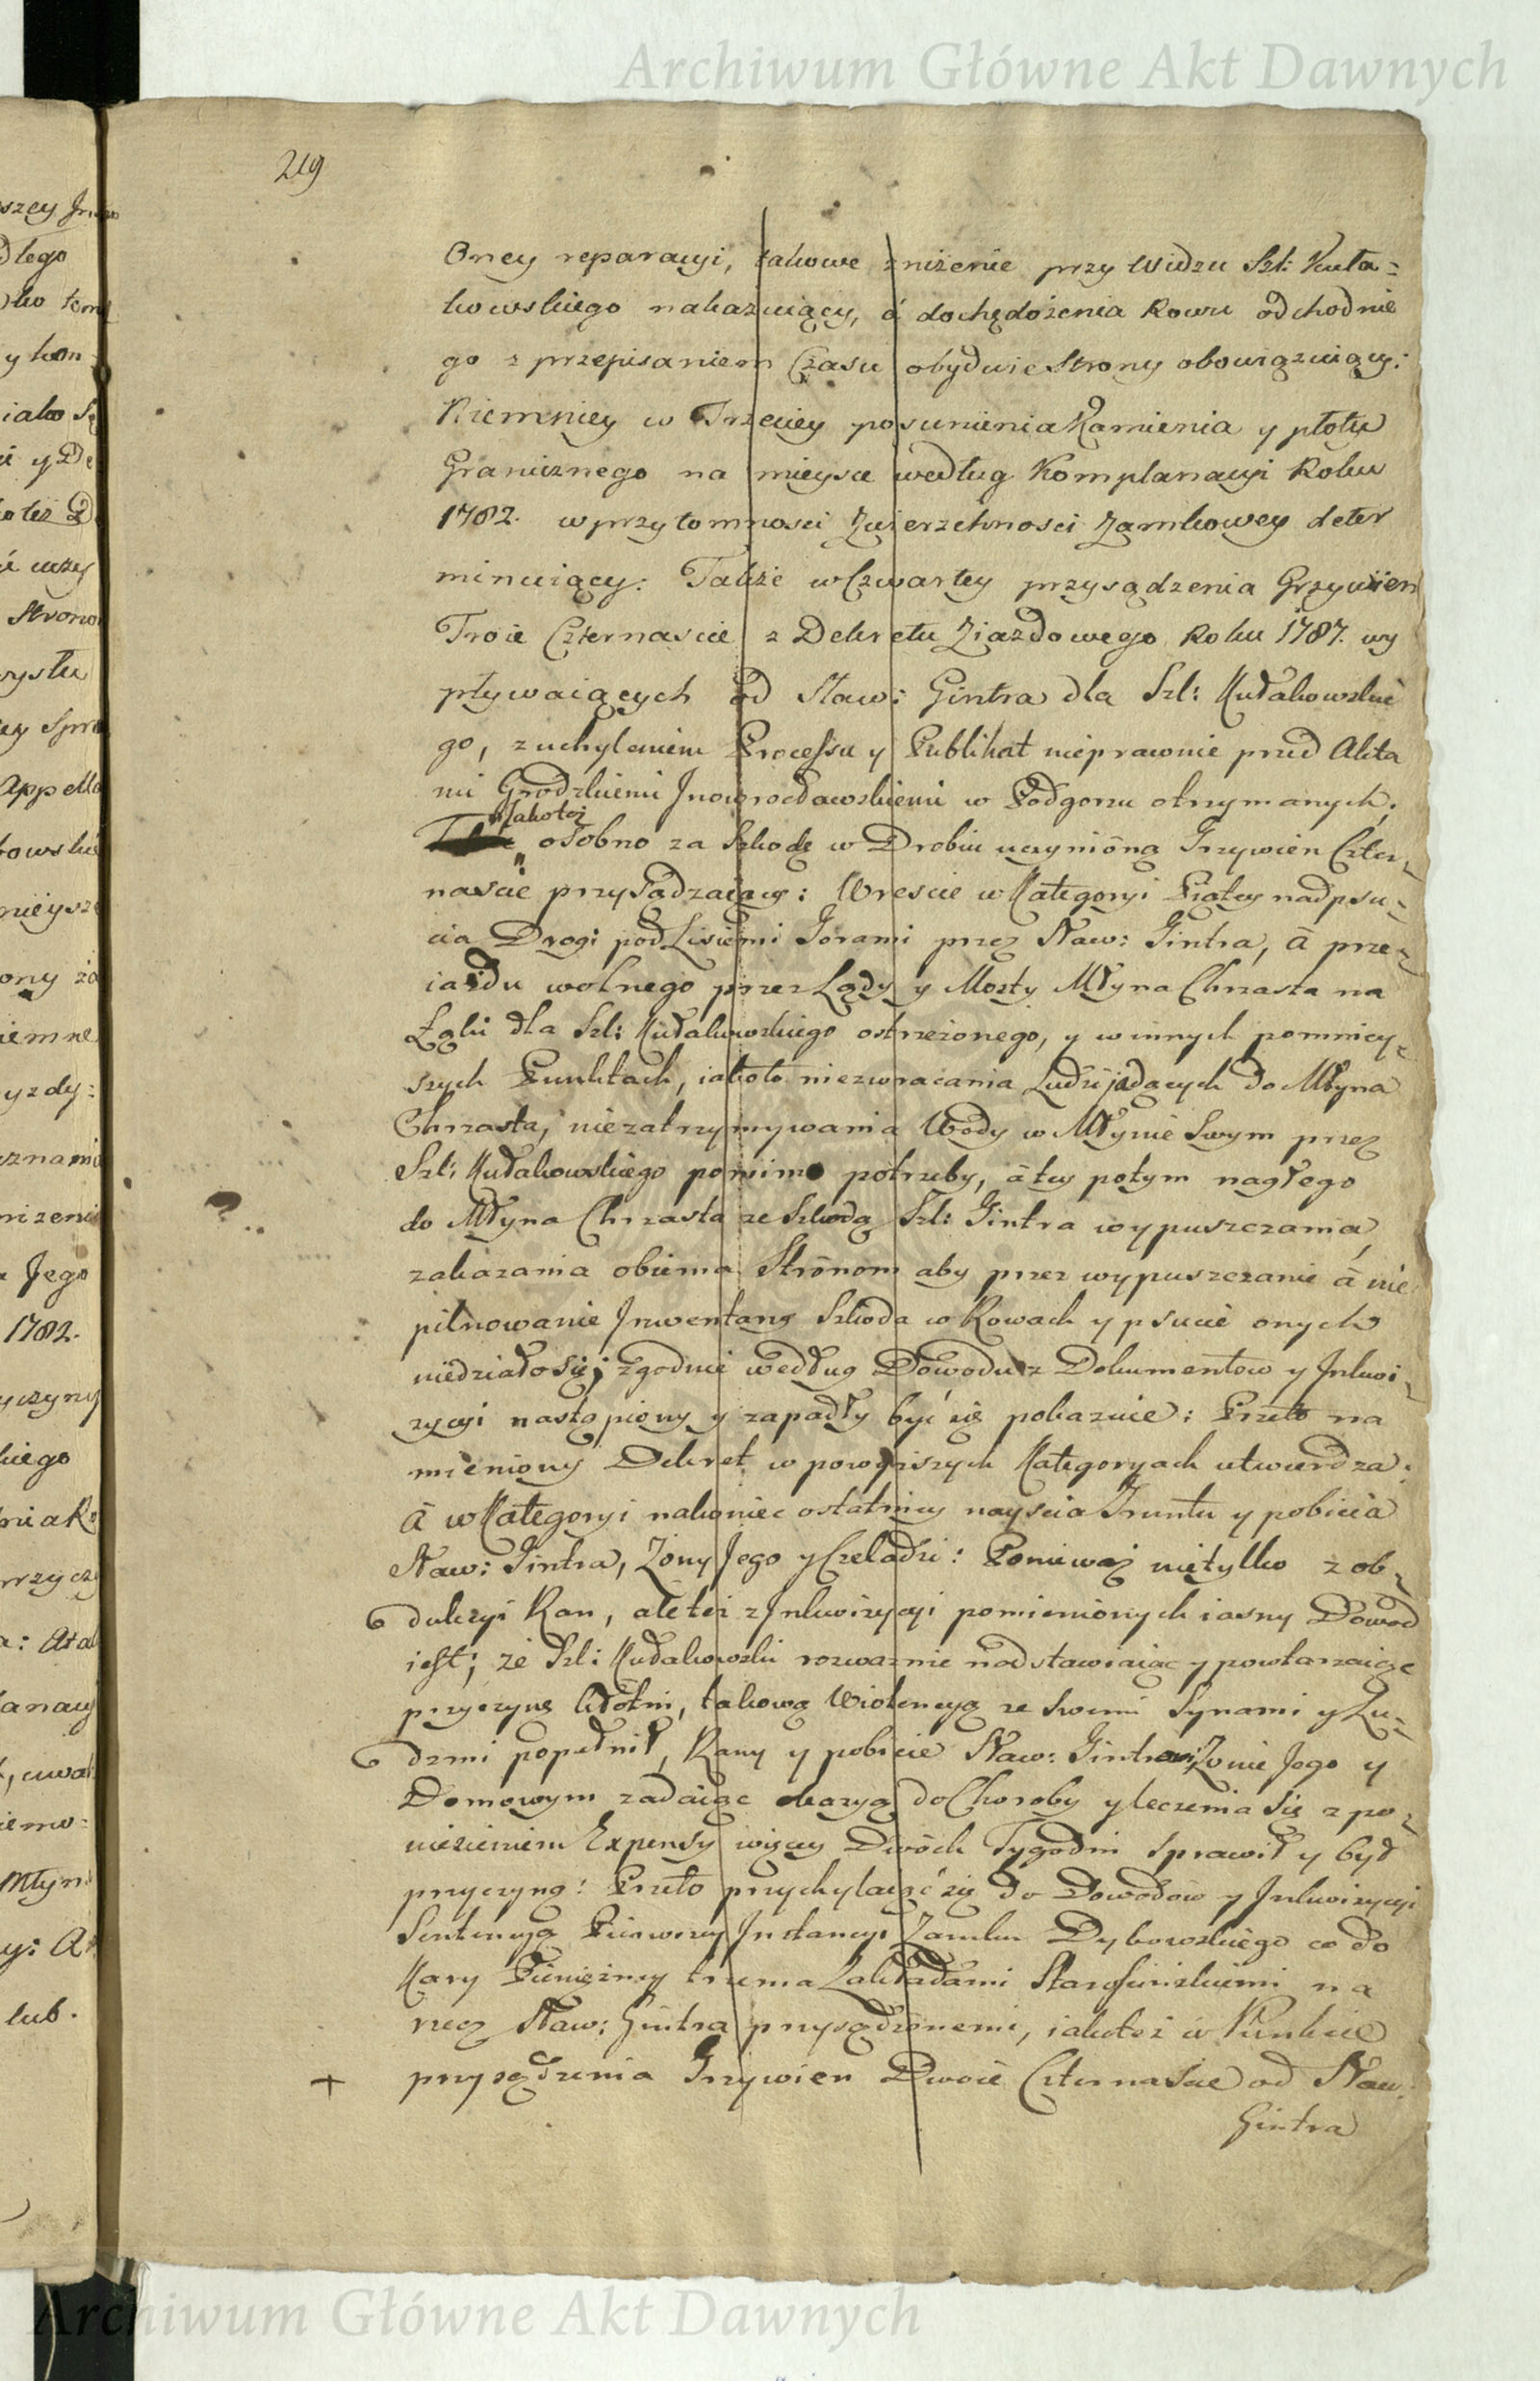 Archiwum Główne Akt Dawnych
219
Oney reparacyi, takowe zniżenie przy Widzu Szl: Kuła=
kowskiego nakazuiący, á dochędożenia Rowu odchodnie
go z przepisaniem Czasu obydwie Strony obowiązuiący:
Niemniey w Trzeciey posunienia Kamienia y płotu
Granicznego na mieysce według Komplanacyi Roku
1782. w przytomności Zwierzchności Zamkowey deter
minuiący: Także w Czwartey przysądzenia Grzywien
Troie Czternascie z Dekretu Ziazdowego Roku 1787. wy
pływaiących od Sław: Gintra dla Szl: Kułakowskie
go, z uchyleniem Processu y Publikat nieprawnie przed Akta
mi Grodzkiemi Inowrocławskiemi w Podgorzu otrzymanych;
Jakoteż
osobno za Szkodę w Drobiu uczynióną Grzywien Czter=
nascie przysądzaiący: Wreście w Kategoryi Piątey nadpsu=
cia Drogi pod Lisiemi Gorami przez Sław: Gintra, á prze=
iazdu wolnego przez Lądy y Mosty Młyna Chrzasta na
Łąki dla Szl: Kułakowskiego ostrzeżonego, y w innych pomniey=
szych Punktach, iakoto niezwracania Ludzi jadących do Młyna
Chrzasta, niezatrzymywania Wody w Młynie Swym przez
Szl: Kułakowskiego pomimo potrzeby, á tey potym nagłego
do Młyna Chrzasta ze Szkodą Szl: Gintra wypuszczania,
zakazania obiema Strónom aby przez wypuszczanie á nie
pilnowanie Inwentarzy Szkoda w Rowach y psucie onych
niedziało się; zgodnie według Dowodu z Dokumentow y Inkwi=
zycyi nastąpiony y zapadły być się pokazuie: Przeto na
mieniony Dekret w powyższych Kategoryach utwierdza:
Á w Kategoryi nakoniec ostatniey nayscia Gruntu y pobicia
Sław: Gintra, Zony Jego y Czeladzi: Ponieważ nietylko z ob=
dukcyi Ran, ale też z Inkwizycyi pomienionych iasny Dowod
iest; że Szl: Kułakowski rozważnie nadstawiaiąc y powtarzaiąc
przyczynę kłótni, takową Wiolencyą ze Swemi Synami y Lu=
dzmi popełnił, Rany y pobicie Sław: Gintrowi Zonie Jego y
Domowym zadaiąc okazyą do Choroby y leczenia się z po=
niesieniem Expensy więcey Dwóch Tygodni sprawił y był
przyczyną: Przeto przychylaiąc się do Dowodów y Inkwizycyi
Sentencyą Pierwszey Instancyi Zamku Dybowskiego co do
Kary Pieniężney trzema Zakładami Starościńskiemi na
rzecz Sław: Gintra przysądzonemi, iakoteż w Punkcie
+ przysądzenia Grzywien Dwoie Czternascie od Sław:
Gintra
Archiwum Główne Akt Dawnych